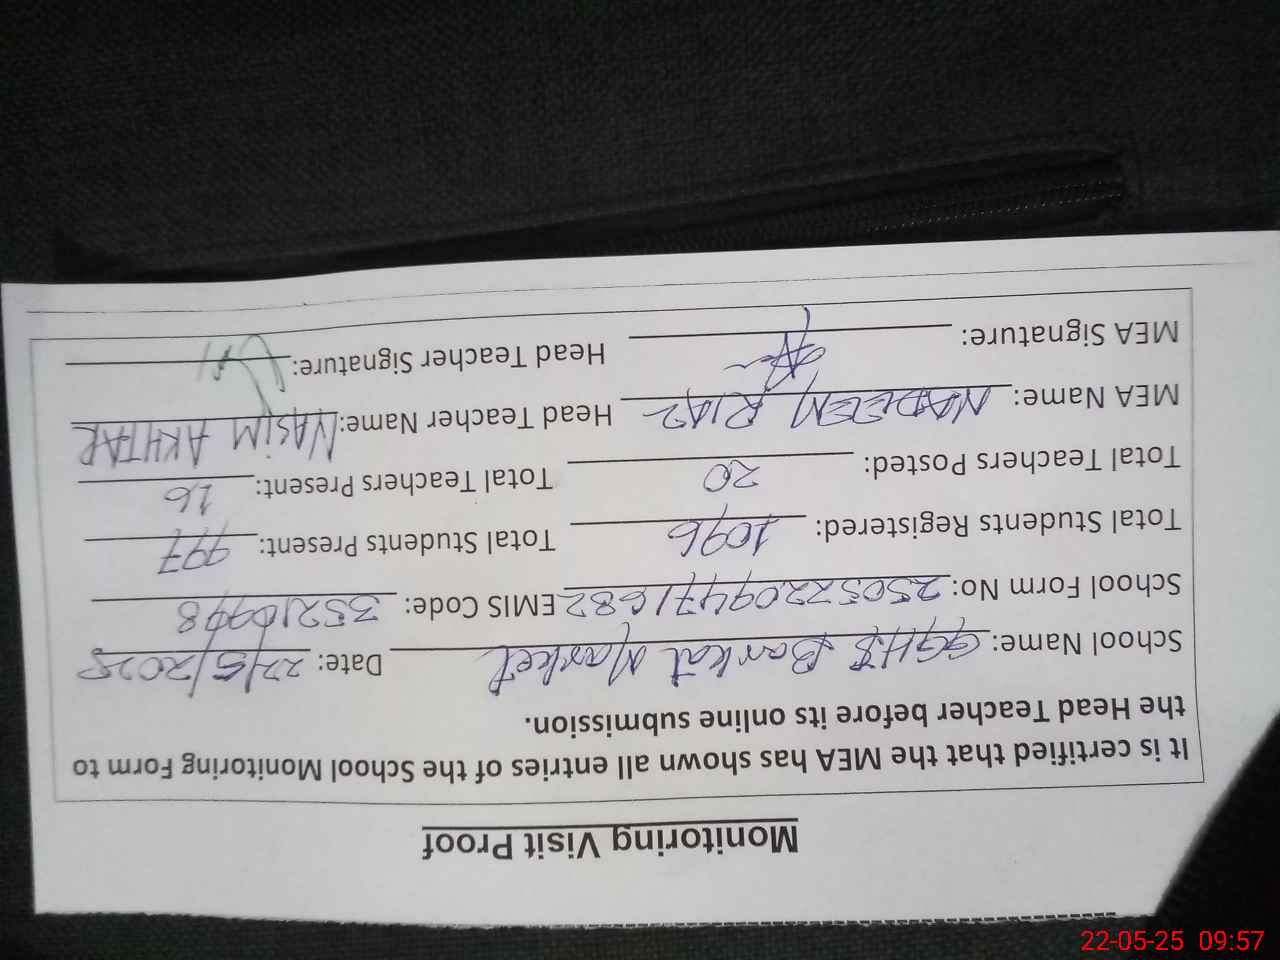 Monitoring Visit Proof
It is certified that the MEA has shown all entries of the School Monitoring Form to
the Head Teacher before its online submission.
School Name: GGHS Barkat Market Date: 22/5/2025
School Form No: 25052209471682 EMIS Code: 35210948
Total Students Registered: 1096 Total Students Present: 997
Total Teachers Posted: 20 Total Teachers Present: 16
MEA Name: NADEEM RIAZ Head Teacher Name: NASIM AKHTAR
MEA Signature: Head Teacher Signature:
22-05-25 09:57